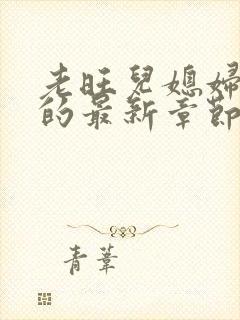 老旺兒媳婦
的最新章節
青葦